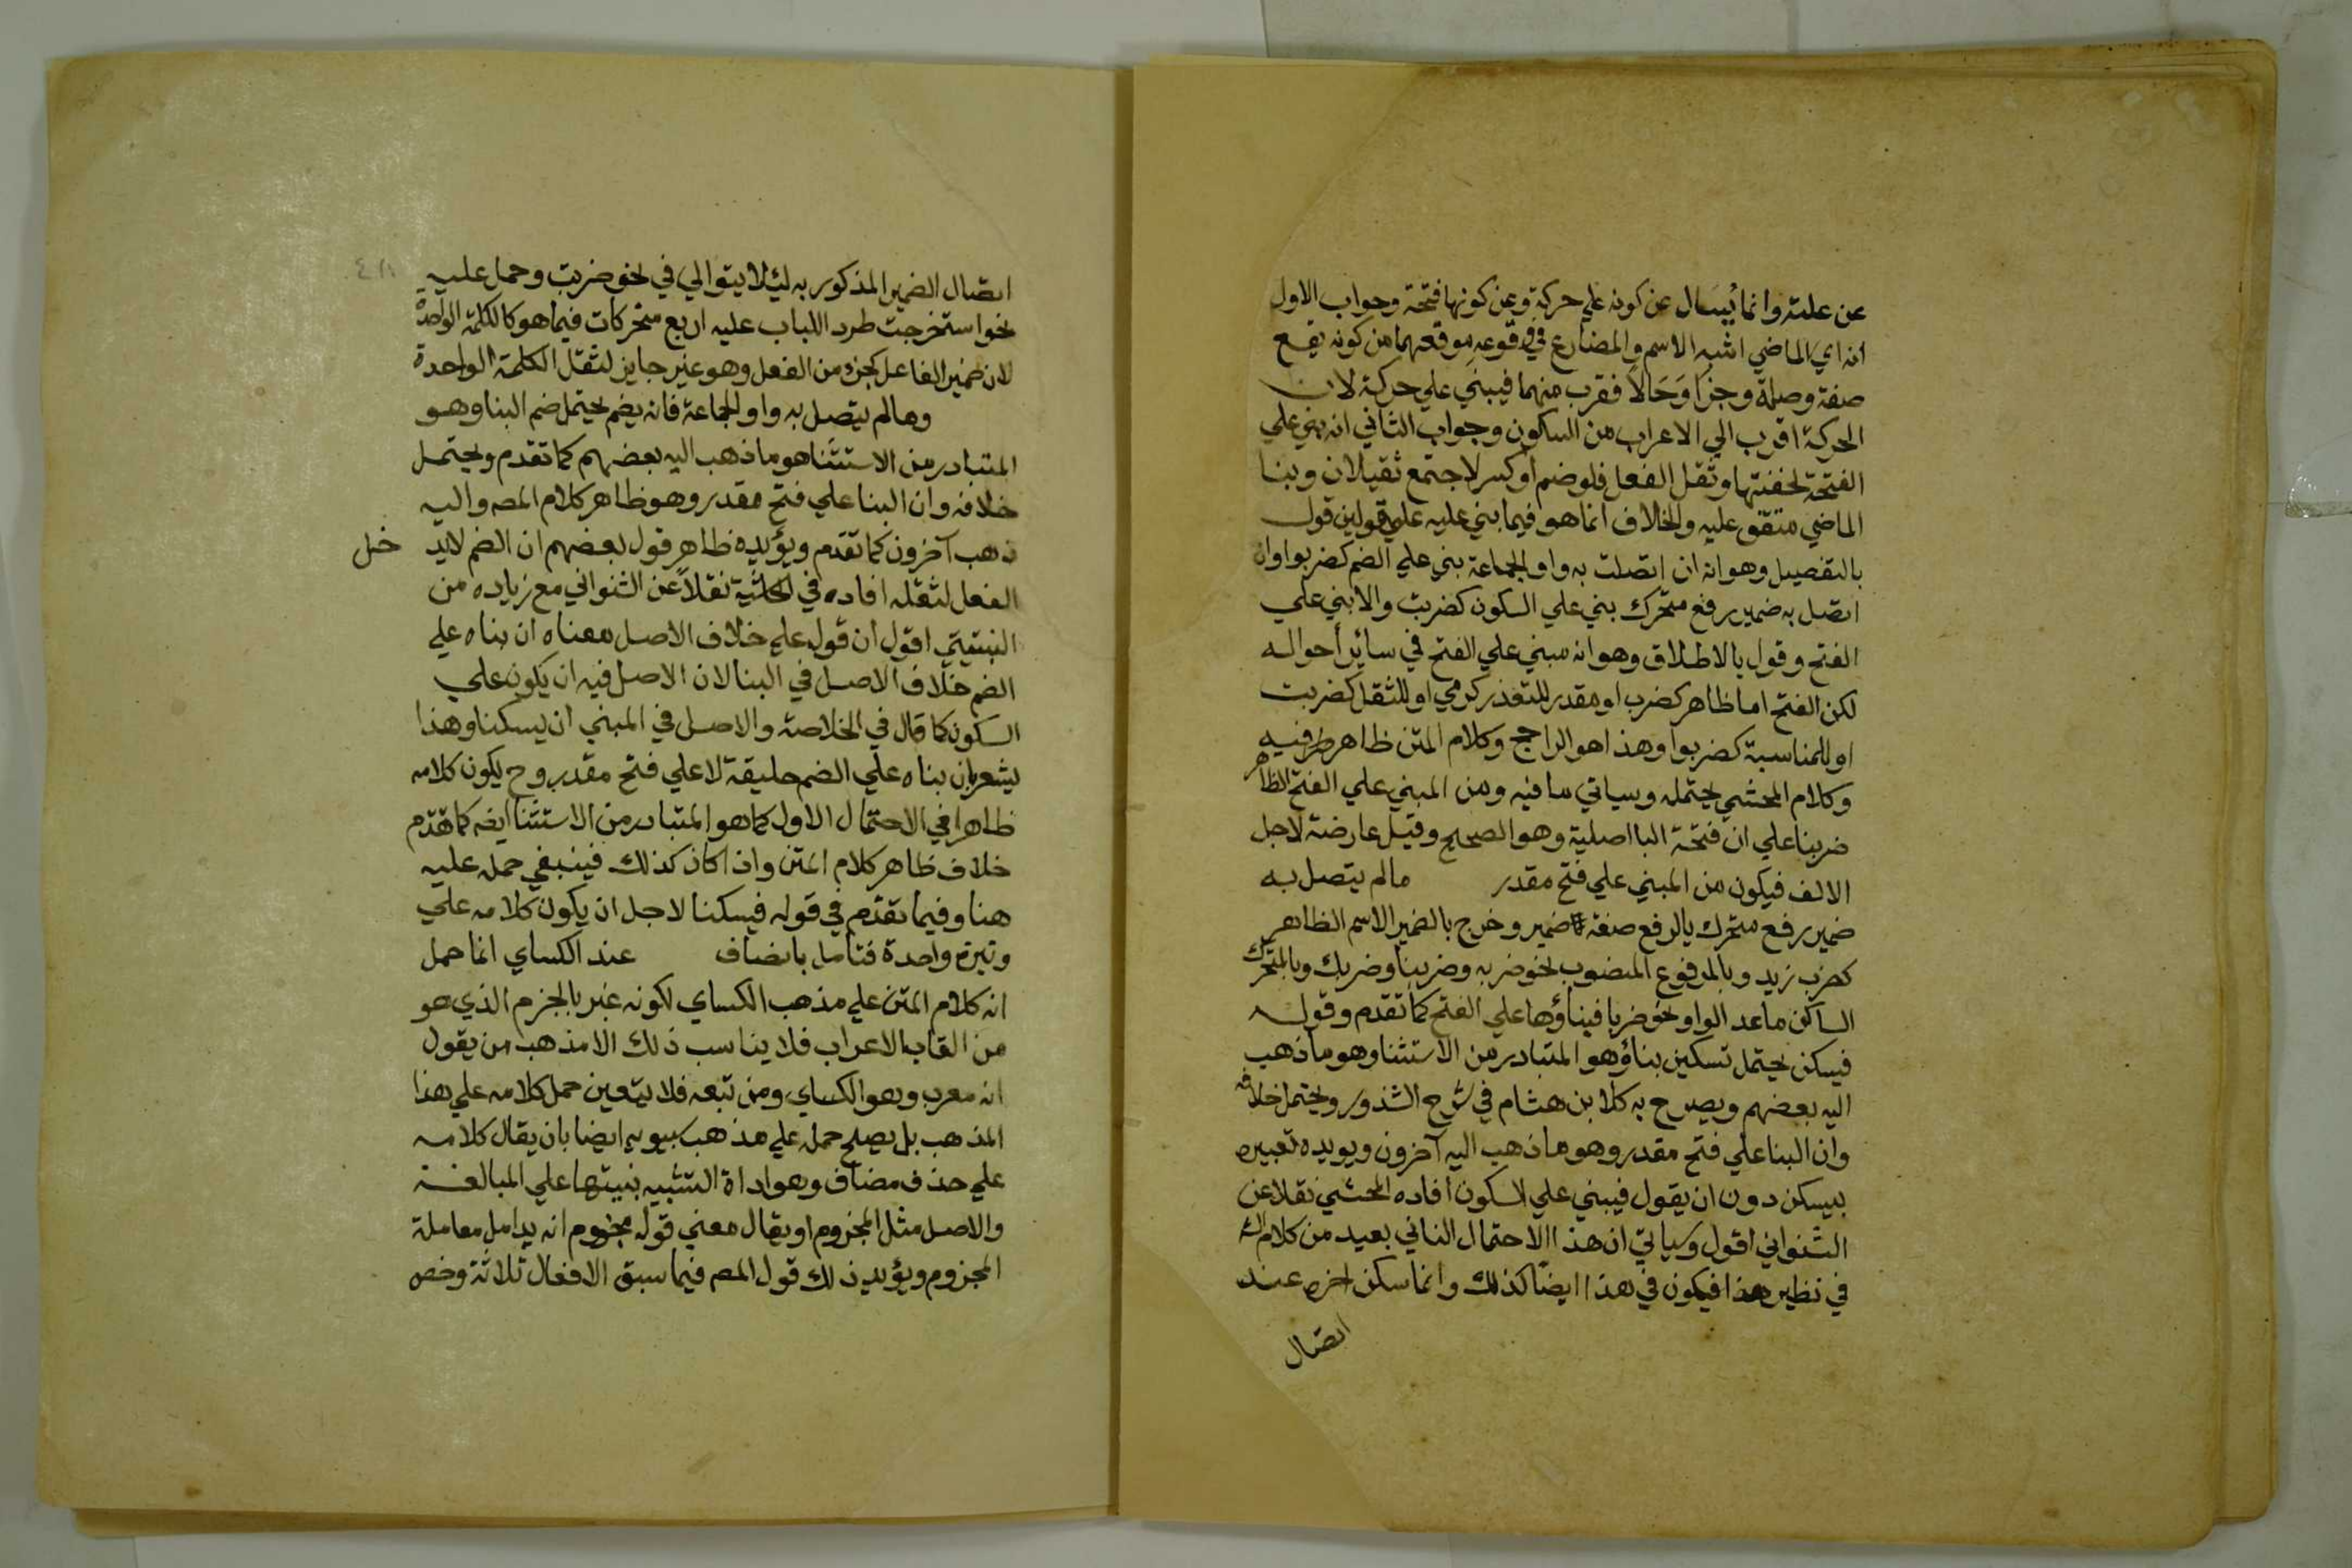 عن علته وانما يُسَال عن كونه علي حركة وعن كونها فتحة وجواب الاول
انه اي الماضي اشبه الاسم والمضارع في وقوعه موقعهما من كونه يقع
صفة وصلة وجزا وَحَالاً فقرب منهما فيبني علي حركة لان
الحركة اقرب الي الاعراب من السكون وجواب الثاني انه بني علي
الفتحة لخفتها وثقل الفعل فلو ضم او كسر لاجتمع ثقيلان وبنا
الماضي متفق عليه والخلاف انما هو فيما بني عليه علي قولين قول
بالتفصيل وهو انه ان اتصلت به واو الجماعة بني علي الضم كضربوا وان
اتصل به ضمير رفع متحرك بني علي السكون كضربت والا بني علي
الفتح وقول بالاطلاق وهو انه مبني علي الفتح في سائر أحواله
لكن الفتح اما ظاهر كضرب او مقدر للتعذر كرمي او للثقل كضربت
او للمناسبة كضربوا وهذا هو الراجح وكلام المتن ظاهر فيه
وكلام المحشي يحتمله وسياتي ما فيه ومن المبني علي الفتح الظاهر
ضربنا علي ان فتحة البا اصلية وهو الصحيح وقيل عارضة لاجل
الالف فيكون من المبني علي فتح مقدر مالم يتصل به
ضمير رفع متحرك بالرفع صفة ضمير وخرج بالضمير الاسم الظاهر
كضرب زيد وبالمرفوع المنصوب نحو ضربه وضربنا وضربك وبالمتحرك
الساكن ماعد الواو نحو ضربا فبناؤها علي الفتح كما تقدم وقوله
فيسكن يحتمل تسكين بناؤ هو المتبادر من الاستثنا وهو ما ذهب
اليه بعضهم ويصرح به كلا بن هشام في شرح الشذور ويحتمل خلافه
وان البنا علي فتح مقدر وهو ما ذهب اليه آخرون ويويده تعبيره
بيسكن دون ان يقول فيبني علي السكون افاده المحشي نقلا عن
الشنواني اقول وسياتي ان هذا الاحتمال الثاني بعيد من كلام
في نظير هذا فيكون في هذا ايضًا كذلك وانما سكن اخره عند
اتصال
اتصال الضمير المذكور به ليُلا يتوالي في نحو ضربت وحمل عليه
نحو استخرجت طرد اللباب عليه اربع متحركات فيما هو كالكلمة الواحدة
لان ضمير الفاعل كجزء من الفعل وهو غير جايز لثقل الكلمة الواحدة
ومالم يتصل به واو الجماعة فانه يضم يحتمل ضم البنا وهو
المتبادر من الاستثنا هو ما ذهب اليه بعضهم كما تقدم ويحتمل
خلافه وان البنا علي فتح مقدر وهو ظاهر كلام المصه واليه
ذهب آخرون كما تقدم ويؤيده ظاهر قول بعضهم ان الضم لايد خل
الفعل لثقله افاده في الحاشية نقلاً عن الشنواني مع زياده من
النبتيتي اقول ان قول علي خلاف الاصل معناه ان بناه علي
الضم خلاف الاصل في البنا لان الاصل فيه ان يكون علي
السكون كما قال في الخلاصة والاصل في المبني ان يسكنا وهذا
يشعر بان بناه علي الضم حقيقة لا علي فتح مقدر وح يكون كلامه
ظاهرا في الاحتمال الاول كما هو المتبادر من الاستثنا ايضه كما تقدم
خلاف ظاهر كلام المتن واذا كان كذلك فينبغي حمله عليه
هنا وفيما تقدم في قوله فيسكنا لاجل ان يكون كلامه علي
وتيرة واحدة فتامل بانصاف عند الكساي انما حمل
انه كلام المتن علي مذهب الكساي لكونه عبر بالجزم الذي هو
من القاب الاعراب فلا يناسب ذلك الا مذهب من يقول
انه معرب وهو الكساي ومن تبعه فلا يتعين حمل كلامه علي هذا
المذهب بل يصلح حمله علي مذهب سيبويه ايضا بان يقال كلامه
علي حذف مضاف وهو اداة التشبيه بنيتها علي المبالغة
والاصل مثل المجزوم او يقال معني قوله مجزوم انه يعامل معاملة
المجزوم ويؤيد ذلك قول المصه فيما سبق الافعال ثلاثة وخص